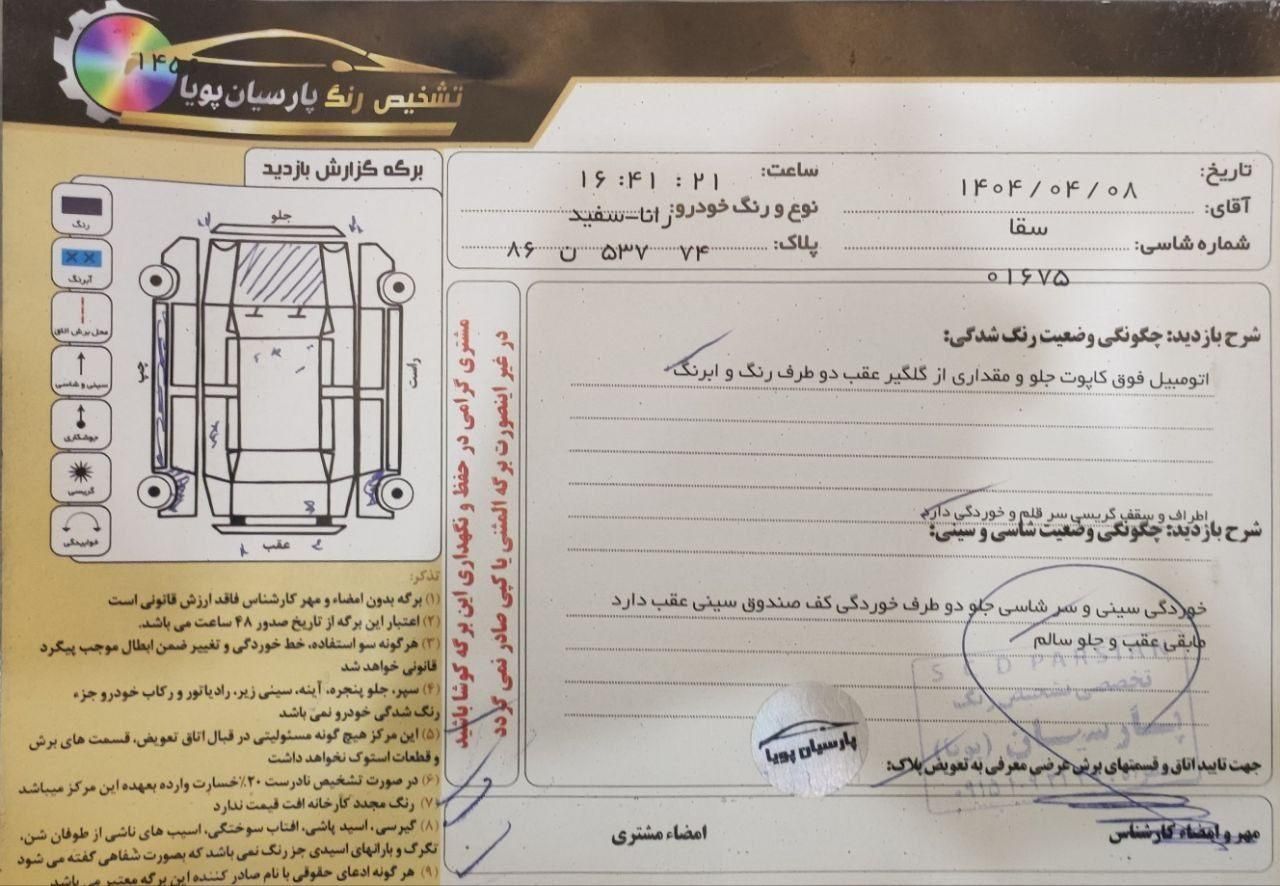 ۱۴۵
تشخیص رنگ پارسیان پویا
برگه گزارش بازدید
تاریخ: ۱۴۰۴/۰۴/۰۸
ساعت: ۱۶:۴۱ : ۲۱
آقای: سقا
نوع و رنگ خودرو: رانا-سفید
شماره شاسی: ۰۱۶۷۵
پلاک: ۸۶ ن ۵۳۷ ۷۴
رنگ
آبرنگ
محل برش اتاق
سینی و شاسی
جوشکاری
گریسی
خوابیدگی
جلو
چپ
راست
عقب
مشتری گرامی در حفظ و نگهداری این برگه کوشا باشید
در غیر اینصورت برگه المثنی یا کپی صادر نمی گردد
شرح بازدید: چگونگی وضعیت رنگ شدگی:
اتومبیل فوق کاپوت جلو و مقداری از گلگیر عقب دو طرف رنگ و ابرنگ
اطراف و سقف گریسی سر قلم و خوردگی دارد
شرح بازدید: چگونگی وضعیت شاسی و سینی:
خوردگی سینی و سر شاسی جلو دو طرف خوردگی کف صندوق سینی عقب دارد
مابقی عقب و جلو سالم
تخصصی تشخیص رنگ
پارسیان (پویا)
پارسیان پویا
جهت تایید اتاق و قسمتهای برش عرضی معرفی به تعویض پلاک:
مهر و امضاء کارشناس
امضاء مشتری
تذکر:
(۱) برگه بدون امضاء و مهر کارشناس فاقد ارزش قانونی است
(۲) اعتبار این برگه از تاریخ صدور ۴۸ ساعت می باشد.
(۳) هرگونه سو استفاده، خط خوردگی و تغییر ضمن ابطال موجب پیگرد
قانونی خواهد شد
(۴) سپر، جلو پنجره، آینه، سینی زیر، رادیاتور و رکاب خودرو جزء
رنگ شدگی خودرو نمی باشد
(۵) این مرکز هیچ گونه مسئولیتی در قبال اتاق تعویض، قسمت های برش
و قطعات استوک نخواهد داشت
(۶) در صورت تشخیص نادرست ۲۰٪ خسارت وارده بعهده این مرکز میباشد
(۷) رنگ مجدد کارخانه افت قیمت ندارد
(۸) گیرسی، اسید پاشی، افتاب سوختگی، اسیب های ناشی از طوفان شن،
تگرگ و بارانهای اسیدی جز رنگ نمی باشد که بصورت شفاهی گفته می شود
(۹) هر گونه ادعای حقوقی با نام صادر کننده این برگه معتبر می باشد